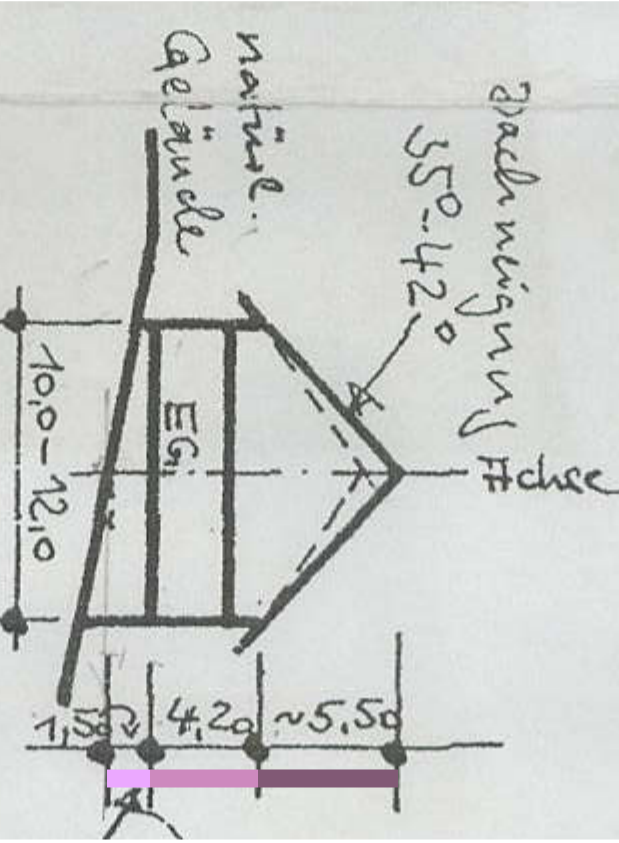 Dachneigung
35°-42°
natürl.
Gelände
Achse
EG
10,0-12,0
1,50
4,20
~5,50